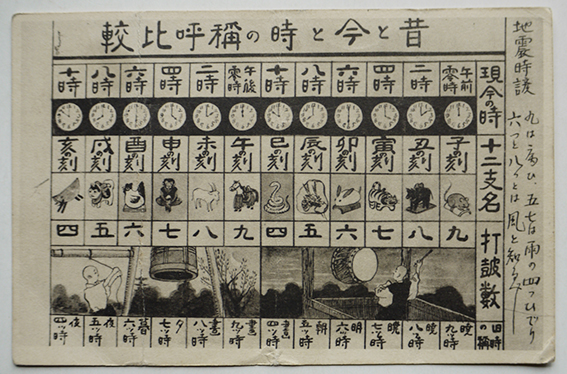 地震時
九は病ひ、五七は雨の四つひでり
六つと八つとは風と知るべし
昔と今と時の稱呼比較
現今の時 午前零時 二時 四時 六時 八時 十時 午後零時 二時 四時 六時 八時 十時
十二支名 子の刻 丑の刻 寅の刻 卯の刻 辰の刻 巳の刻 午の刻 未の刻 申の刻 酉の刻 戌の刻 亥の刻
打鼓數 九 八 七 六 五 四 九 八 七 六 五 四
旧時の稱 暁九ッ時 暁八ッ時 暁七ッ時 明六ッ時 朝五ッ時 晝四ッ時 晝九ッ時 晝八ッ時 夕七ッ時 暮六ッ時 夜五ッ時 夜四ッ時